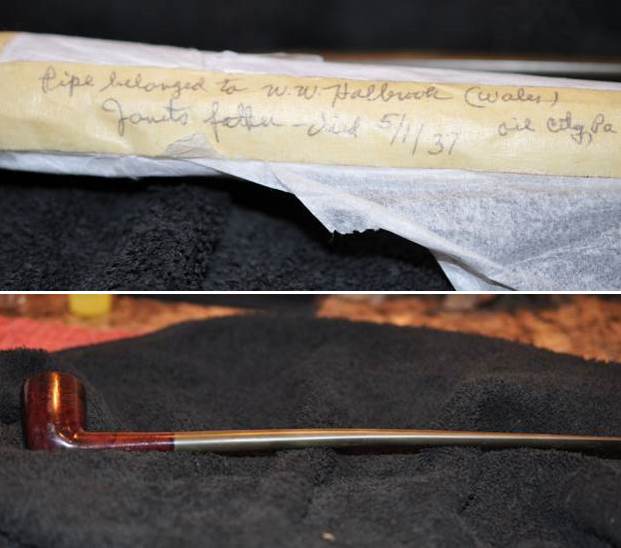 Pipe belonged to W.W. Halbrook (Wales)
Janets father - died 5/1/37 oil city, Pa